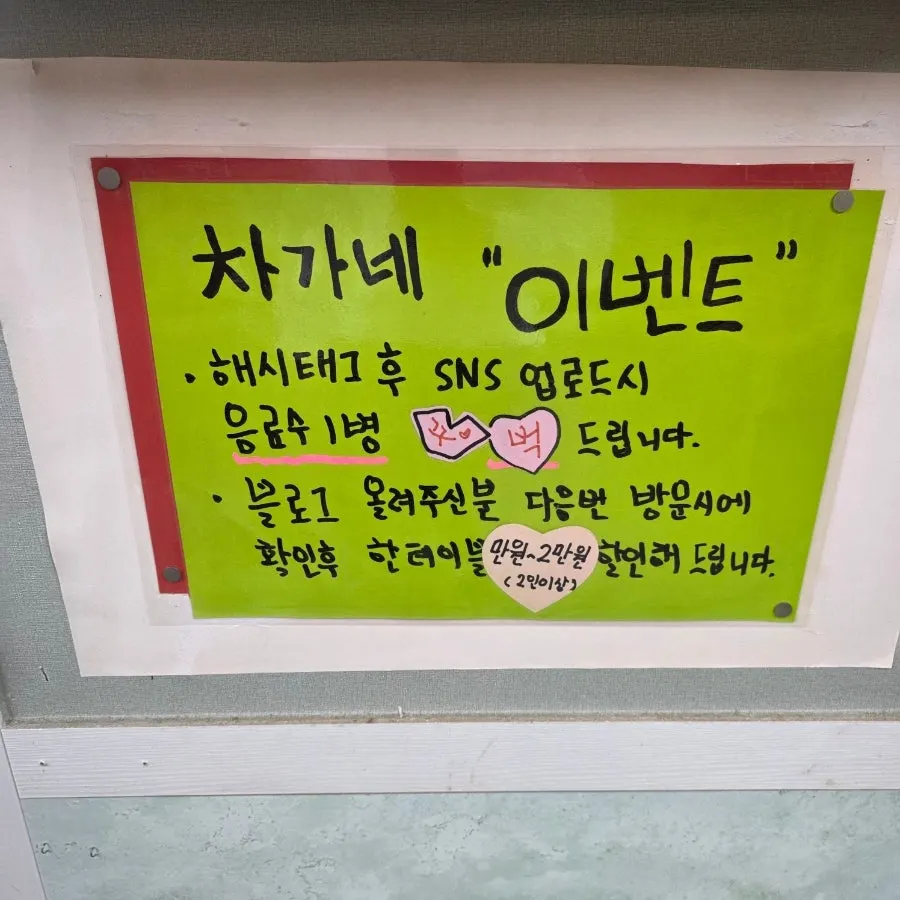 차가네 "이벤트"
· 해시태그 후 SNS 업로드시
음료수 1병 드립니다.
· 블로그 올려주신분 다음번 방문시에
확인후 한테이블 만원~2만원 할인해 드립니다.
(2인이상)